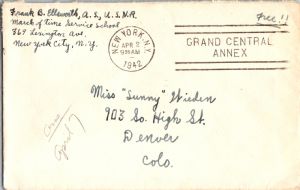 Frank B. Ellsworth, A.S., U.S.N.R.
March of Time Service School
369 Lexington Ave.
New York City, N.Y.
Free!!
NEW YORK, N.Y.
APR 2
1942
GRAND CENTRAL
ANNEX
Miss "Sunny" Wieden
903 So. High St.
Denver
Colo.
April 7